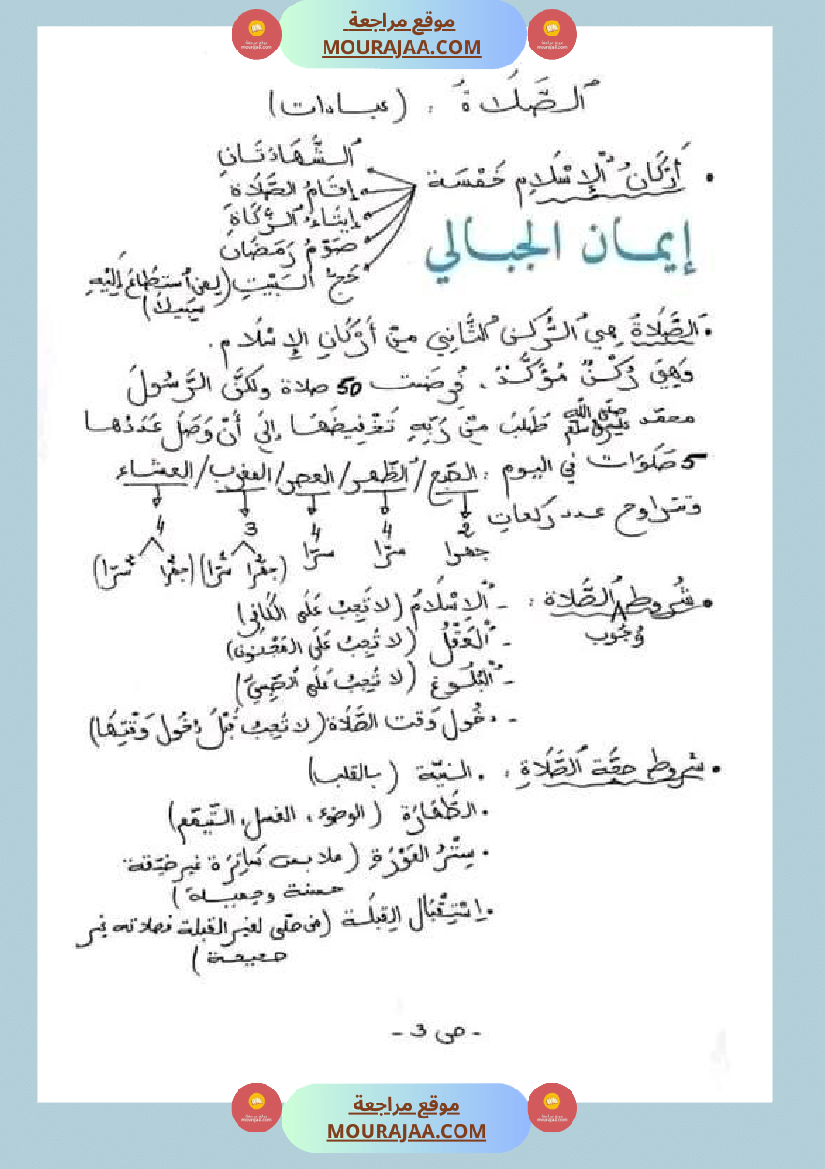 موقع مراجعة
MOURAJAA.COM
الصَّلَاةُ : (عبادات)
• أَرْكَانُ الإِسْلَامِ خَمْسَة
الشَّهَادَتَانِ
إِقَامُ الصَّلَاة
إِيتَاءُ الزَّكَاةِ
صَوْمُ رَمَضَان
حَجُّ البَيْتِ (لِمَن اسْتَطَاعَ إِلَيْهِ
سَبِيلًا)
إيمان الجبالي
• الصَّلَاةُ هِيَ الرُّكْنُ الثَّانِي مِنْ أَرْكَانِ الإِسْلَام .
وَهِيَ رُكْنٌ مُؤَكَّدٌ . فُرِضَت 50 صلاة ولَكِنَّ الرَّسُولَ
محمّد صلى الله عليه وسلم طَلَبَ مِنْ رَبِّهِ تَخْفِيضَهَا إِلَى أَنْ وَصَلَ عَدَدُهَا
5 صَلَوَات في اليوم : الصّبح / الظّهر / العصر / المغرب / العشاء
وتتراوح عدد ركعات
2 4 4 3 4
جهرا سرّا سرّا (جَهْرًا سرّا) (جَهْرًا سرّا)
• شُرُوط وُجُوب الصَّلَاة :
- الإسْلَامُ (لا تَجِبُ عَلَى الكَافِر)
- العَقْلُ (لا تَجِبُ عَلَى المَجْنُون)
- البُلُوغ (لا تَجِبُ عَلَى الصَّبِيّ)
- دخُول وَقت الصَّلَاة (لا تَجِبُ قَبْلَ دُخُول وَقْتِهَا)
• شروط صحّة الصَّلَاةِ :
• النيّة (بالقلب)
• الطَّهَارَة (الوضوء ، الغسل، التّيمّم)
• سِتْرُ العَوْرَة (ملابس سَاتِرَة غير ضيّقة
حسنة وجميلة)
• اِسْتِقْبَال القِبْلَة (من صلّى لغير القبلة فصلاته غير
صحيحة)
- ص 3 -
موقع مراجعة
MOURAJAA.COM